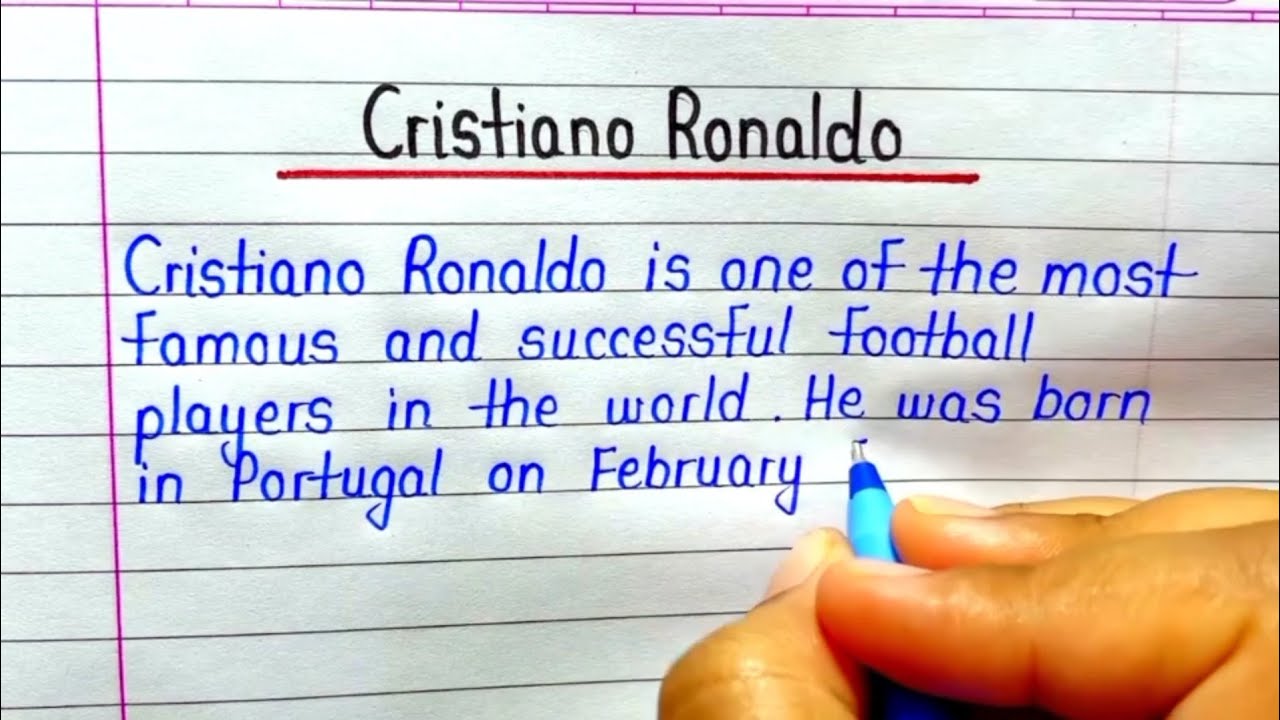 Cristiano Ronaldo
Cristiano Ronaldo is one of the most
famous and successful football
players in the world. He was born
in Portugal on February